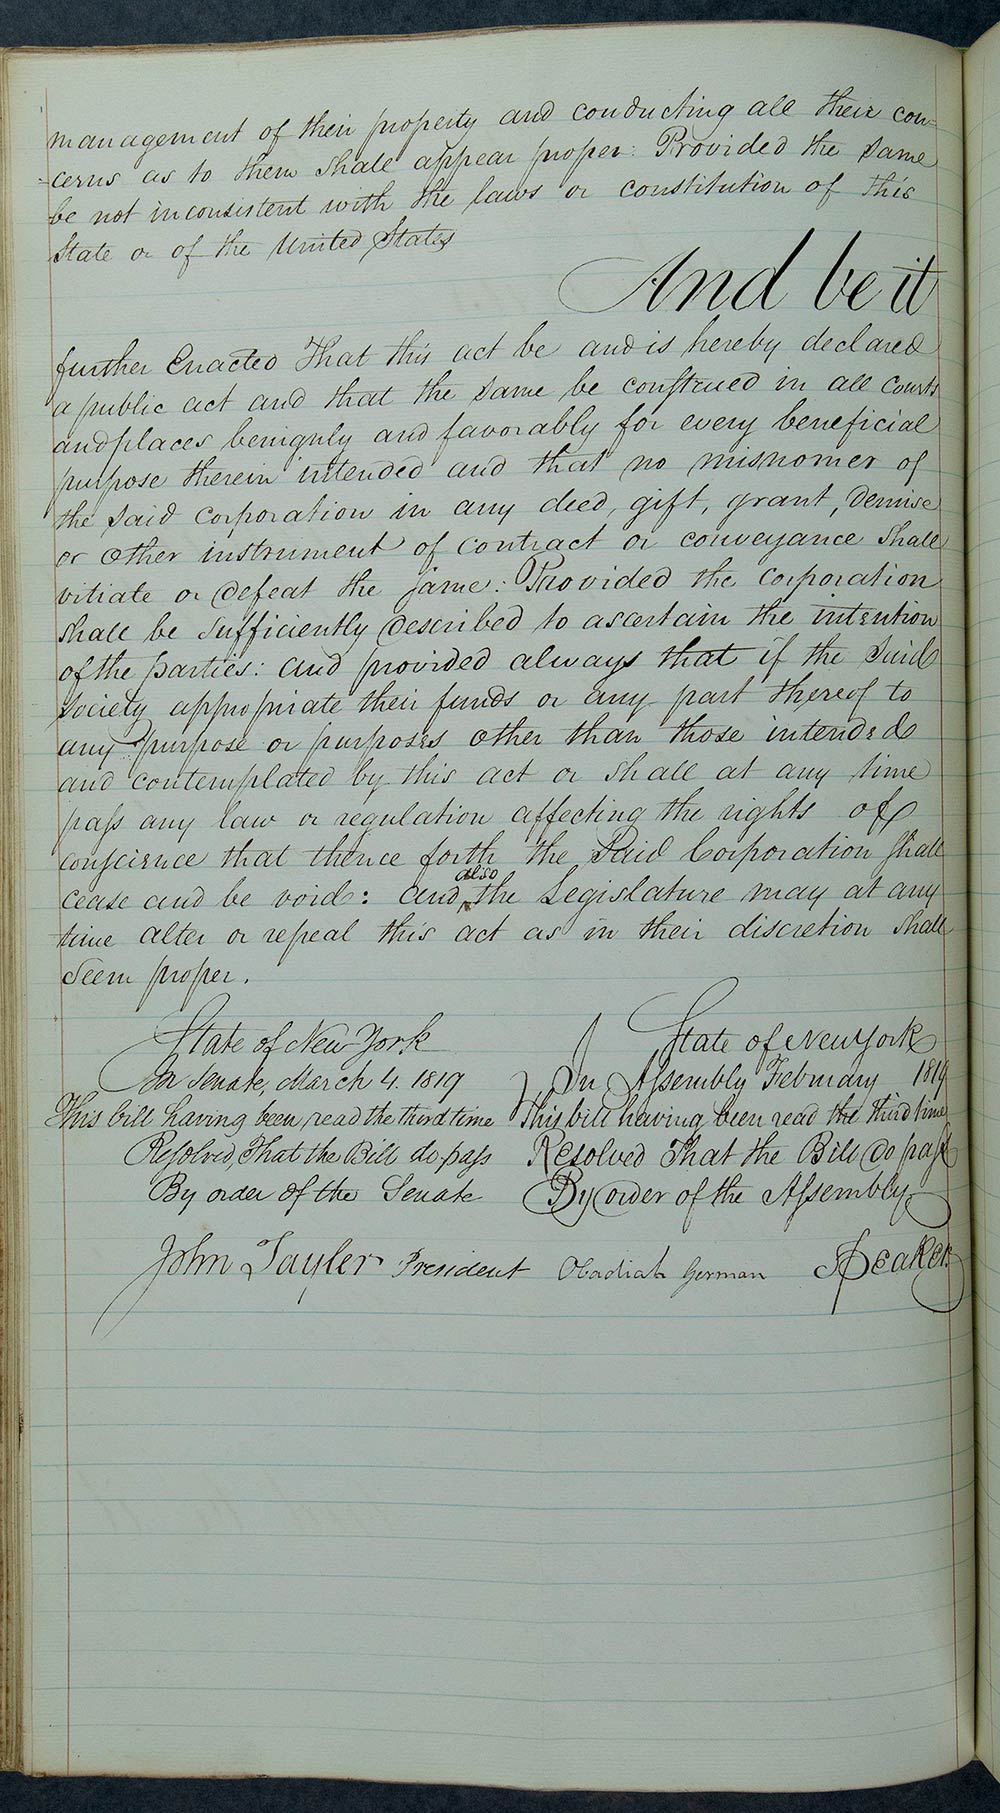 management of their property and conducting all their con=
=cerns as to them shall appear proper: Provided the same
be not inconsistent with the laws or constitution of this
State or of the United States
And be it
further Enacted That this act be and is hereby declared
a public act and that the same be construed in all Courts
and places benignly and favorably for every beneficial
purpose therein intended and that no misnomer of
the said Corporation in any deed, gift, grant, Demise
or other instrument of contract or conveyance Shall
vitiate or defeat the same: Provided the corporation
shall be sufficiently described to ascertain the intention
of the parties: and provided always that if the Said
society appropriate their funds or any part thereof to
any purpose or purposes other than those intended
and contemplated by this act or shall at any time
pass any law or regulation affecting the rights of
conscience that thence forth the Said Corporation shall
cease and be void: and also the Legislature may at any
time alter or repeal this act as in their discretion shall
seem proper.
State of New York
In Senate, March 4. 1819
This bill having been read the third time
Resolved, That the Bill do pass
By order of the Senate
John Tayler President
State of New York
In Assembly February 1819
This bill having been read the third time
Resolved That the Bill do pass
By order of the Assembly
Obadiah German Speaker